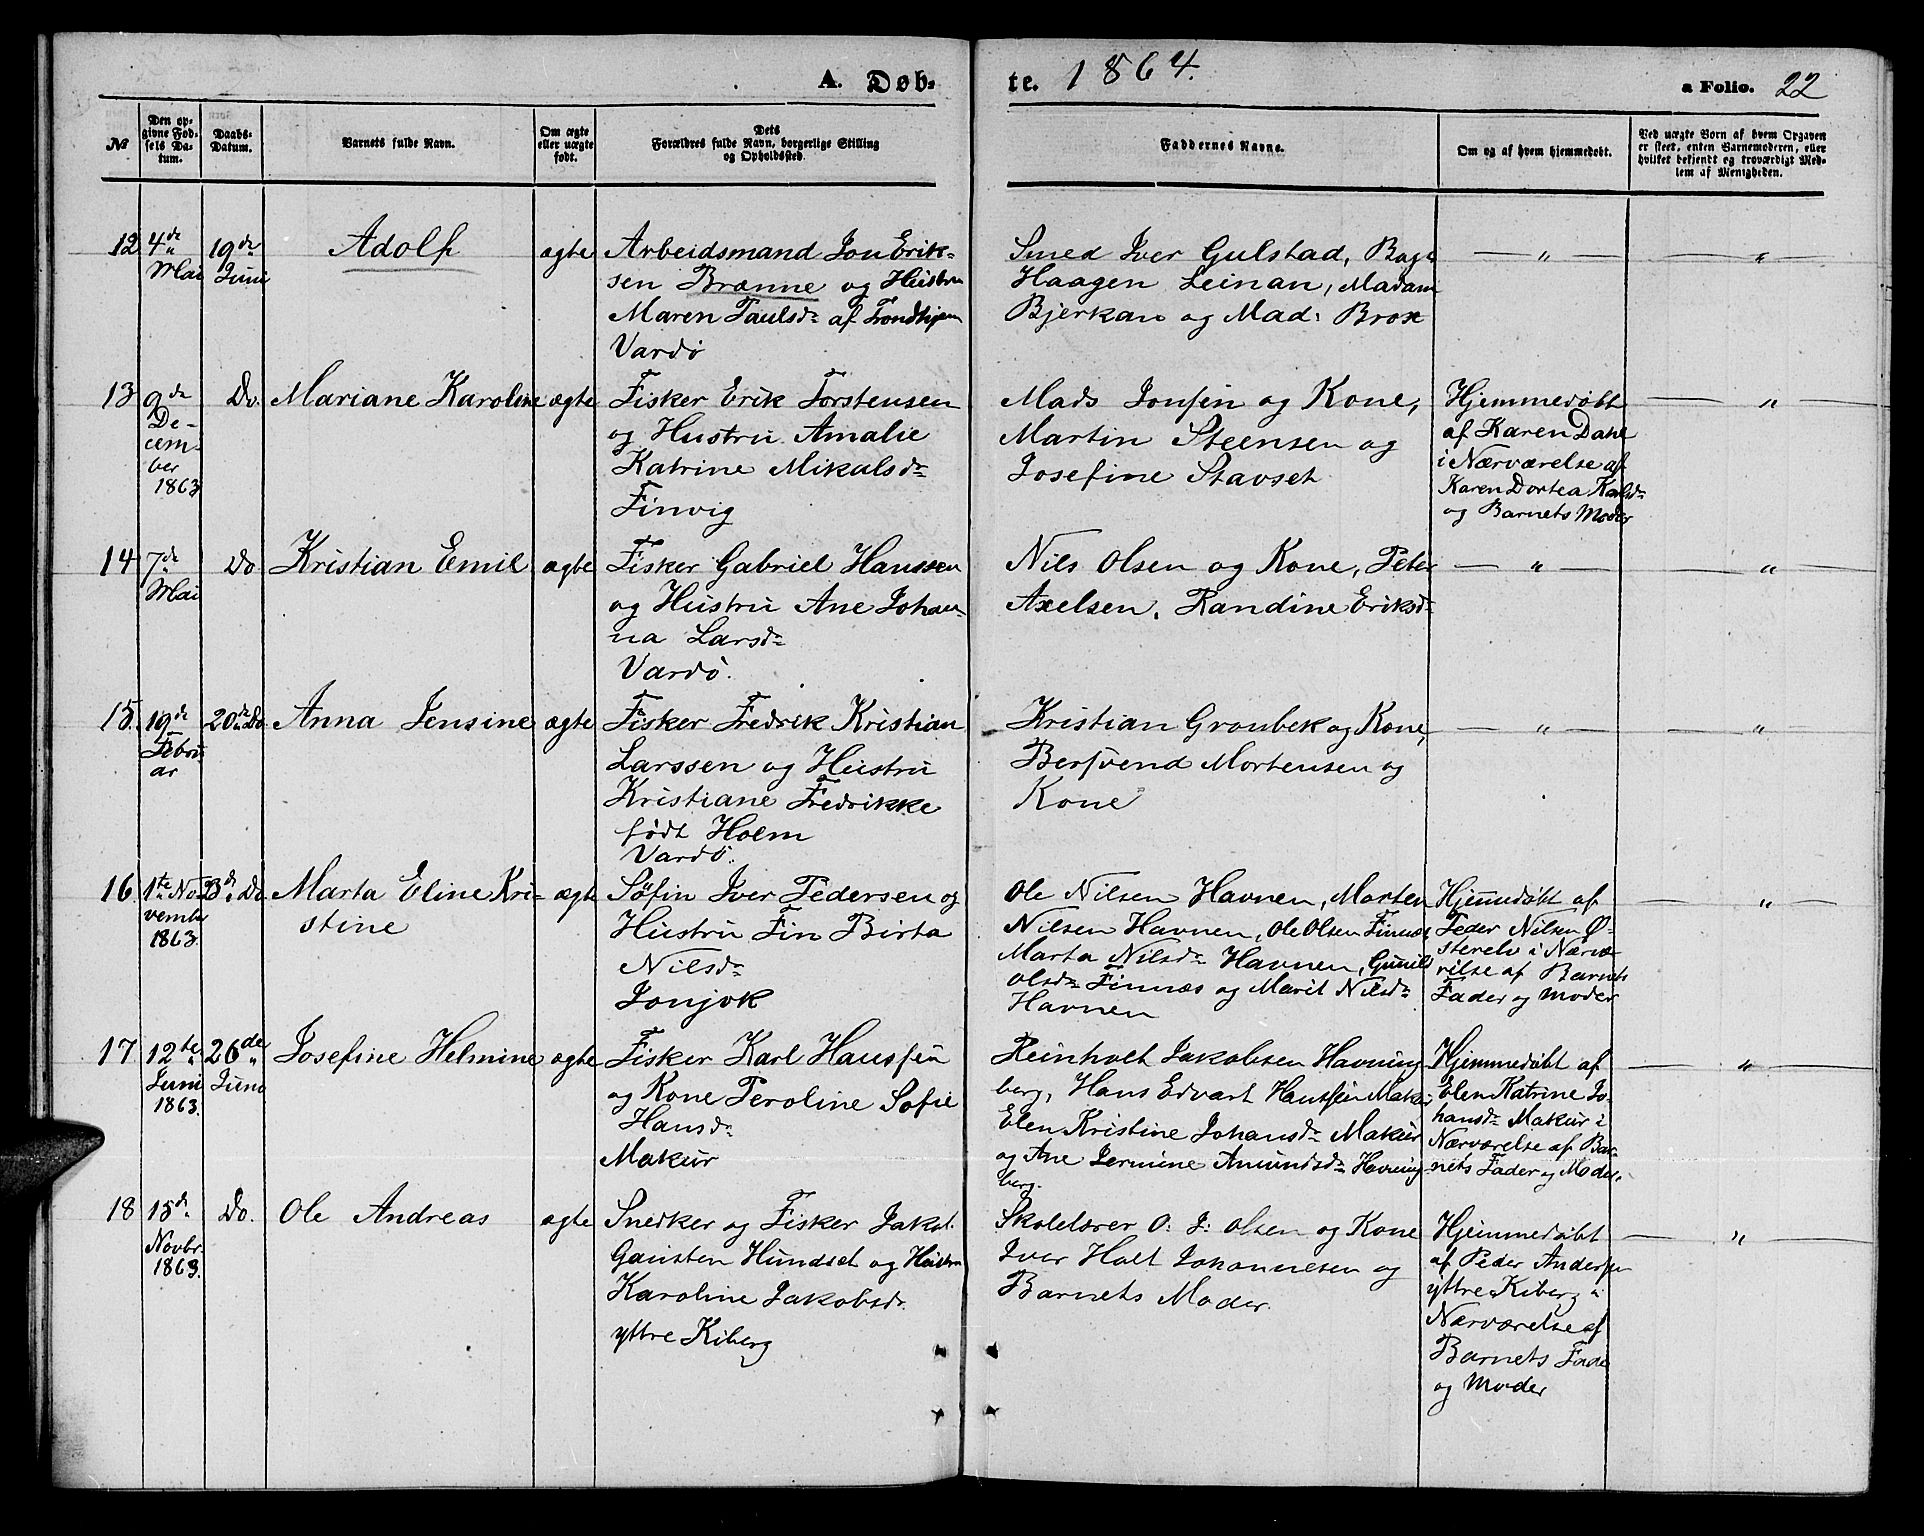 A. Døb-
te. 1864.
a Folio. 22
No
Den op-
givne Fød-
sels Da-
tum.
Daabs-
Datum.
Barnets fulde Navn.
Om ægte
eller uægte
født.
Dets
Forældres fulde Navn, borgerlige Stilling
og Opholdssted.
Faddernes Navne.
Om og af hvem hjemmedøbt.
Ved uægte Born af hvem Opgaven
er skeet, enten Barnemoderen, eller
hvilket bekjendt og troværdigt Med-
lem af Menigheden.
12
4de
Mai
19de
Juni
Adolf
ægte
Arbeidsmand Jon Erik-
sen Brønne og Hustru
Maren Paulsdr af Trondhjem
Vardö
Smed Iver Gulstad,
Haagen Leinan, Madam
Bjerkan og Mad: Brox
— " —
— " —
13
9de
De-
cem-
ber
1863
Do.
Mariane Karoline
ægte
Fisker Erik Torstensen
og Hustru Amalie
Katrine Mikalsdr
Finvig
Mads Jonsen og Kone,
Martin Steensen og
Josefine Stavset
Hjemmedøbt
af Karen Dahl
i Nærværelse af
Karen Dortea Karlsdr
og Barnets Moder
— " —
14
7de
Mai
Do
Kristian Emil
ægte
Fisker Gabriel Hanssen
og Hustru Ane Johan-
na Larsdr
Vardö.
Nils Olsen og Kone, Peter
Axelsen, Randine Eriksdr
— " —
— " —
15.
19de
Febru-
ar
20de Do.
Anna Jensine
ægte
Fisker Fredrik Kristian
Larssen og Hustru
Kristiane Fredrikke
født Holm
Vardö.
Kristian Gronbek og Kone,
Bersvend Mortensen og
Kone
— " —
— " —
16
1te No-
vember
1863.
23de Do.
Marta Eline Kri-
stine
ægte
Söfin Iver Pedersen og
Hustru Fin Birta
Nilsdr
Jonjok
Ole Nilsen Havnen, Morten
Nilsen Havnen, Ole Olsen Finnæs
Marta Nilsdr Havnen, Gunild
Olsdr Finnæs og Marit Nilsdr
Havnen
Hjemmedøbt af
Peder Nilsen Ø-
sterelv i Nærvæ-
relse af Barnets
Fader og Moder
— " —
17
12te
Juni
1863.
26de
Juni
Josefine Helmine
ægte
Fisker Karl Hanssen
og Kone Peroline Sofie
Hansdr
Makur
Reinholt Jakobsen Havning-
berg, Hans Edvart Hanssen Makur,
Elen Kristine Johansdr Makur
og Ane Jermine Amundsdr Havning-
berg.
Hjemmedøbt af
Elen Katrine Jo-
hansdr Makur i
Nærværelse af Bar-
nets Fader og Moder.
— " —
18
15de
Novbr.
1863.
Do.
Ole Andreas
ægte
Snedker og Fisker Jakob
Gunsten Hundset og Hustru
Karoline Jakobsdr.
yttre Kiberg
Skolelærer O: J: Olsen og Kone
Iver Holt Johannesen og
Barnets Moder.
Hjemmedøbt
af Peder Andersen
yttre Kiberg i
Nærværelse af
Barnets Fader
og Moder
— " —